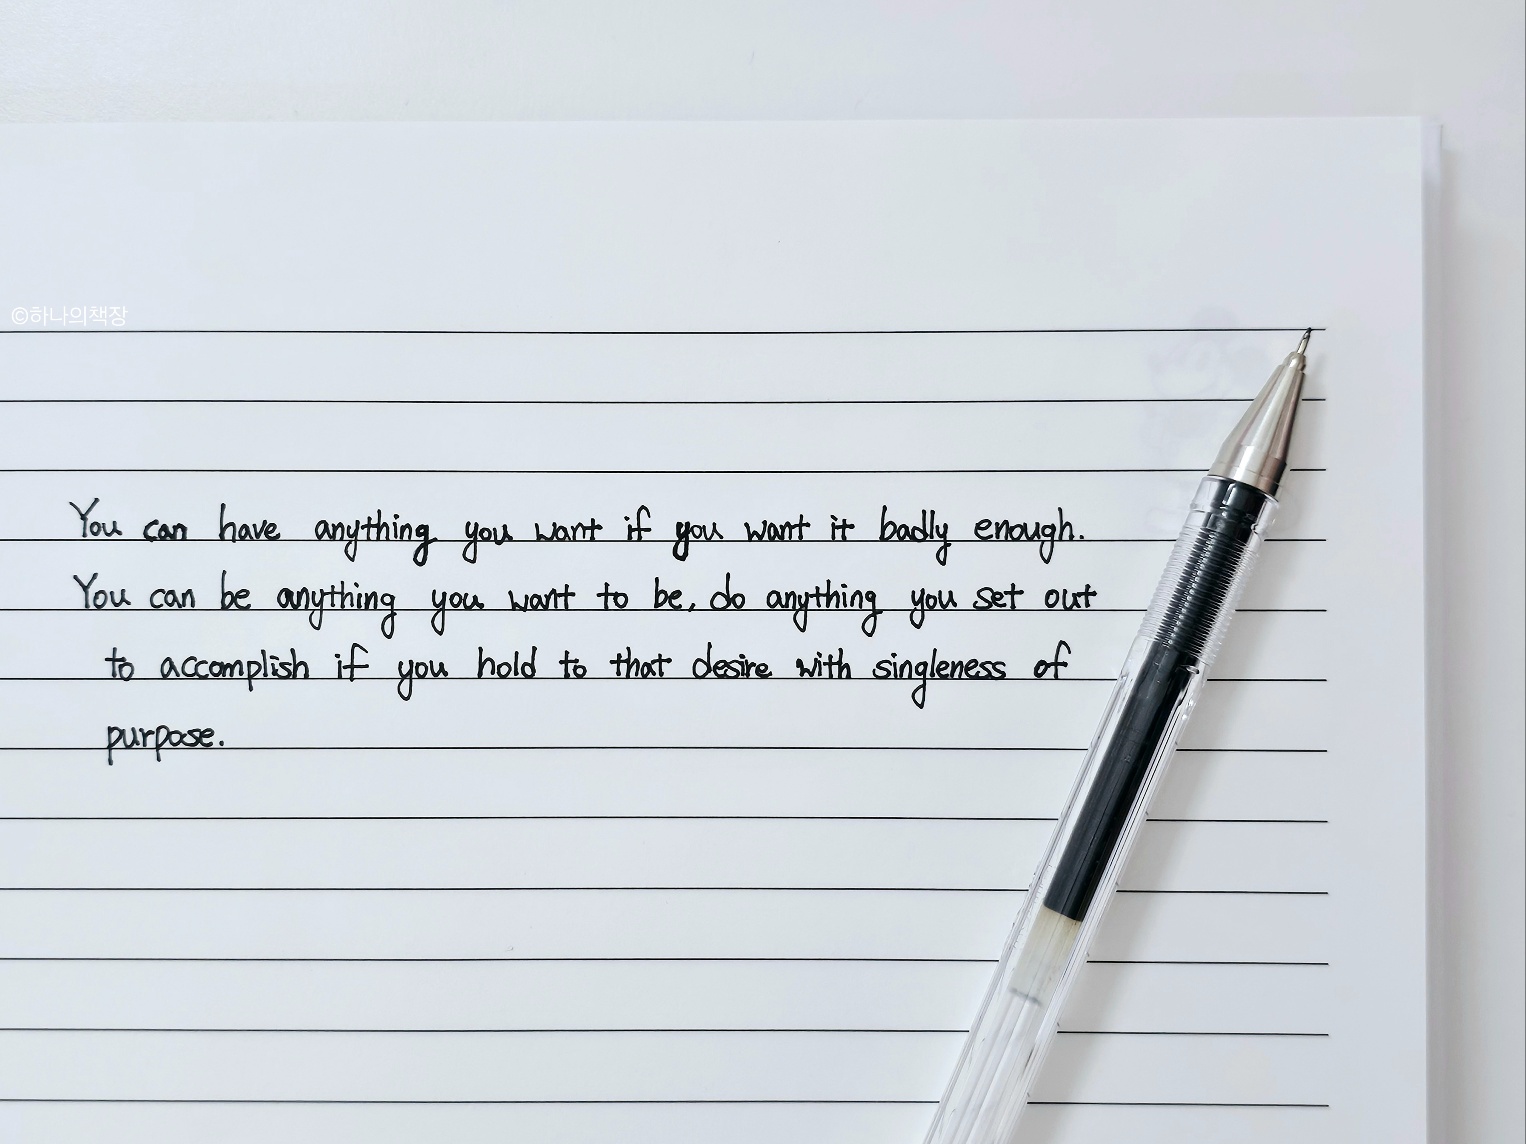 ©하나의책장
You can have anything you want if you want it badly enough.
You can be anything you want to be, do anything you set out
to accomplish if you hold to that desire with singleness of
purpose.